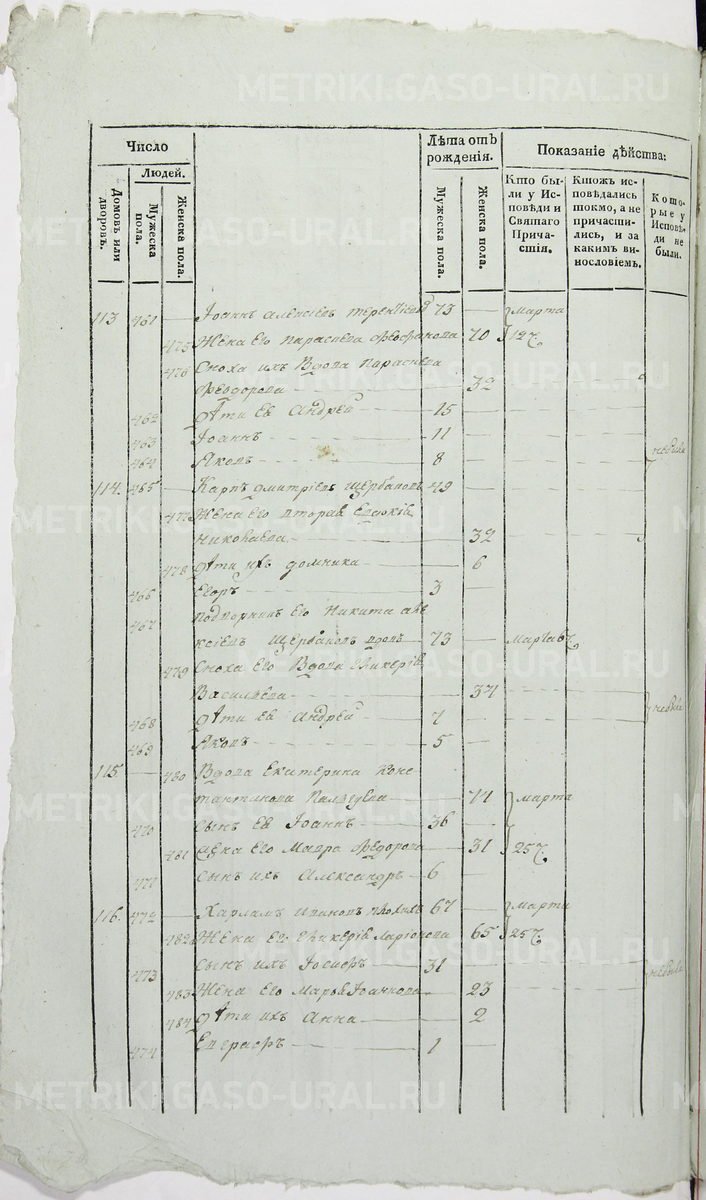 METRIKI.GASO-URAL.RU
Число
Людей.
Домовъ или дворовъ.
Мужеска пола.
Женска пола.
Лѣта отъ рожденія.
Мужеска пола.
Женска пола.
Показаніе дѣйства:
Кто бы-
ли у Ис-
повѣди и
Святаго
Прича-
стія.
Ктожъ ис-
повѣдались
токмо, а не
причасти-
лись, и за
какимъ ви-
нословіемъ.
Кото-
рые у
Исповѣ-
ди не
были.
113 461 Іоаннъ Алексіевъ 73 марта
475 Жена его Параскева Феофанова 70 12
476 Сноха ихъ Вдова Параскева
Феодорова 32
462 Дѣти ея Андрей 15
463 Іоаннъ 11
464 Яковъ 8
114. 465 Карпъ Димитріевъ Щербаковъ 49
477 Жена его вторая Евдокія
Николаева 32
478 Дѣти ихъ Домника 6
466 Егоръ 3
467 Подворникъ его Никита Але
ксіевъ Щербаковъ вдовъ 73 марта
479 Сноха его Вдова Гликерія
Васильева 37
468 Дѣти ея Андрей 7
469 Яковъ 5
115. 480 Вдова Екатерина Конс
тантинова 71 марта
470 Сынъ ея Іоаннъ 36
481 Жена его Мавра Феодорова 31 25
471 Сынъ ихъ Александръ 6
116. 472 Харламъ Ивановъ 67 марта
482 Жена его Гликерія Ларіонова 65 25
473 Сынъ ихъ Іосифъ 31
483 Жена его Марья Іоаннова 23
484 Дѣти ихъ Анна 2
474 Евграфъ 1